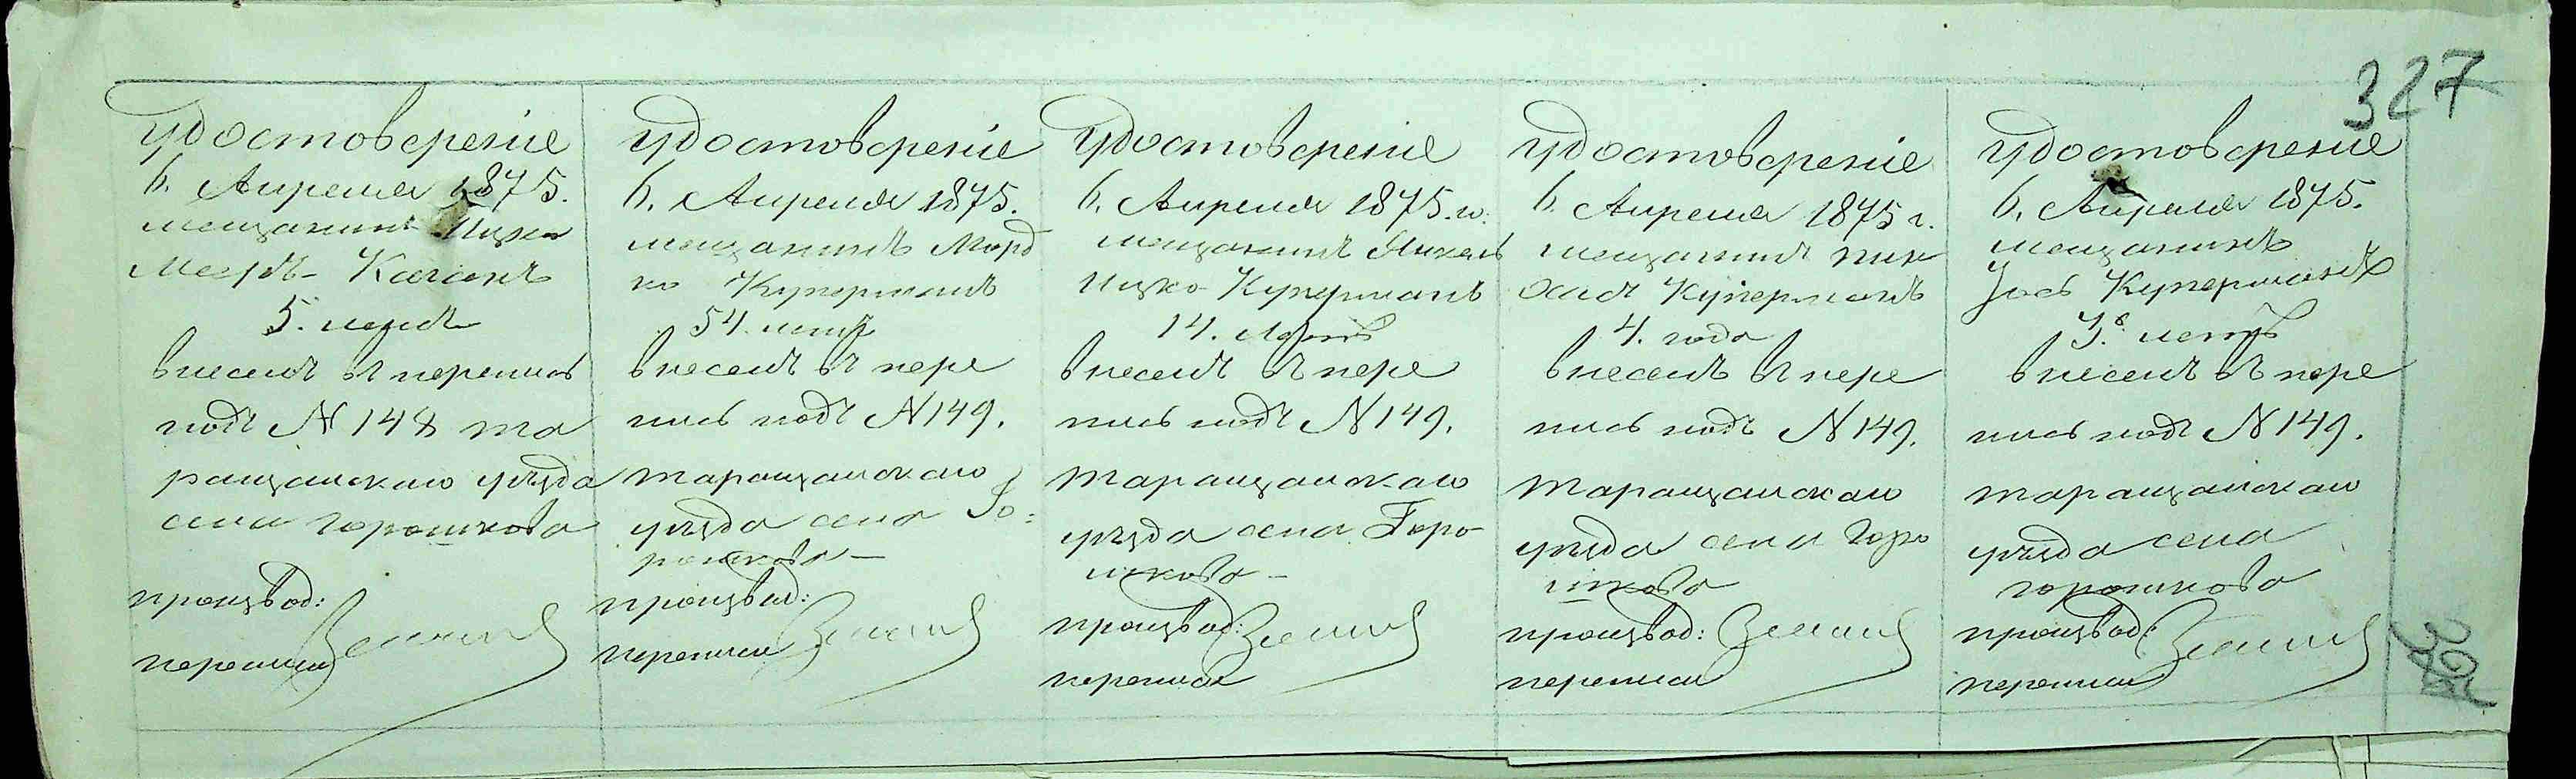 327
Удостовереніе
6. Апреля 1875.
мещанинъ Ицко
Мееръ Каганъ
5. летъ
внесенъ въ перепись
подъ N 148 та
ращанскаго уѣзда
села Горошкова
производ:
переписи
Удостовереніе
6. Апреля 1875.
мещанинъ Морд
ко Куперманъ
54. летъ
внесенъ въ пере
пись подъ N 149.
таращанскаго
уѣзда села Го:
рошкова
производ:
переписи
Удостовереніе
6. Апреля 1875. г.
мещанинъ Янкель
Ицко Куперманъ
14. летъ
внесенъ въ пере
пись подъ N 149.
Таращанскаго
уѣзда села Горо-
шкова
производ:
переписи
Удостовереніе
6. Апреля 1875 г.
мещанинъ
Куперманъ
4. года
внесенъ въ пере
пись подъ N 149.
Таращанскаго
уѣзда села Горо
шкова
производ:
переписи
Удостовереніе
6. Апреля 1875.
мещанинъ
Іось Куперманъ
летъ
внесенъ въ пере
пись подъ N 149.
таращанскаго
уѣзда села
горошкова
производ:
переписи